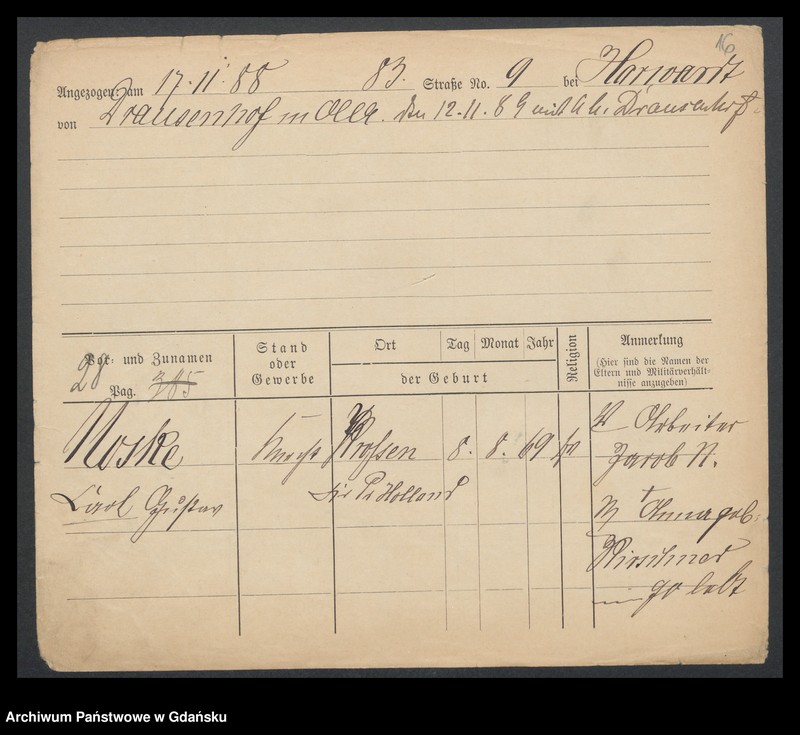 16
Angezogen: am 17.11.88 83. Straße No. 9 bei Harwardt
von Drausenhof m den 12.11.89 mit Drausenhof
Vor- und Zunamen
28 Pag. 385
Stand oder Gewerbe
Ort Tag Monat Jahr
der Geburt
Religion
Anmerkung
(Hier sind die Namen der
Eltern und Militärverhält-
nisse anzugeben)
Noske Knecht Prossen 8. 8. 69 V Arbeiter
Jacob N.
Carl Gustav Kr Pr Holland
M Anna geb.
Kirschner
lebt
Archiwum Państwowe w Gdańsku